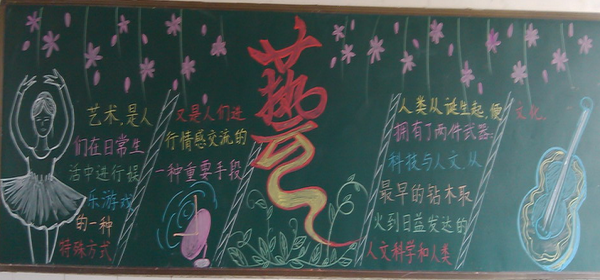 艺术，是人
们在日常生
活中进行提
乐游戏
的一种
特殊方式
又是人们进
行情感交流的
一种重要手段
藝
人类从诞生起，便
拥有了两件武器：
科技与人文。从
最早的钻木取
火到日益发达的
人文科学和人类
文化．